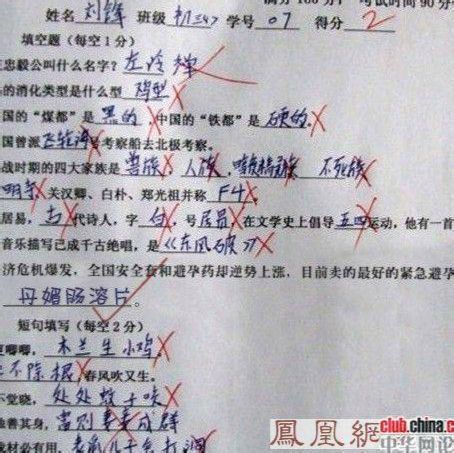 满分100分) 考试时间90分
姓名 刘锋 班级 初三4 学号 07 得分 2
填空题(每空1分)
忠毅公叫什么名字? 左冷禅
的消化类型是什么型
国的“煤都”是 黑的 中国的“铁都”是 硬的
国曾派 号考察船去北极考察。
战时期的四大家族是 兽族、人族、 不死族
关汉卿、白朴、郑光祖并称 F4
居易, 古 代诗人,字 白,号 居易 在文学史上倡导 五四 运动,他有一首
音乐描写已成千古绝唱,是 《东风破》
济危机爆发,全国安全套和避孕药却逆势上涨,目前卖的最好的紧急避孕
丹媚肠溶片。
短句填写(每空2分)
唧唧, 木兰生小鸡
不除根,春风吹又生。
不觉晓, 处处蚊子咬
善其身, 富则妻妾成群
材必有用, 老鼠儿子会打洞
鳳凰網
club.china.c
中华网论